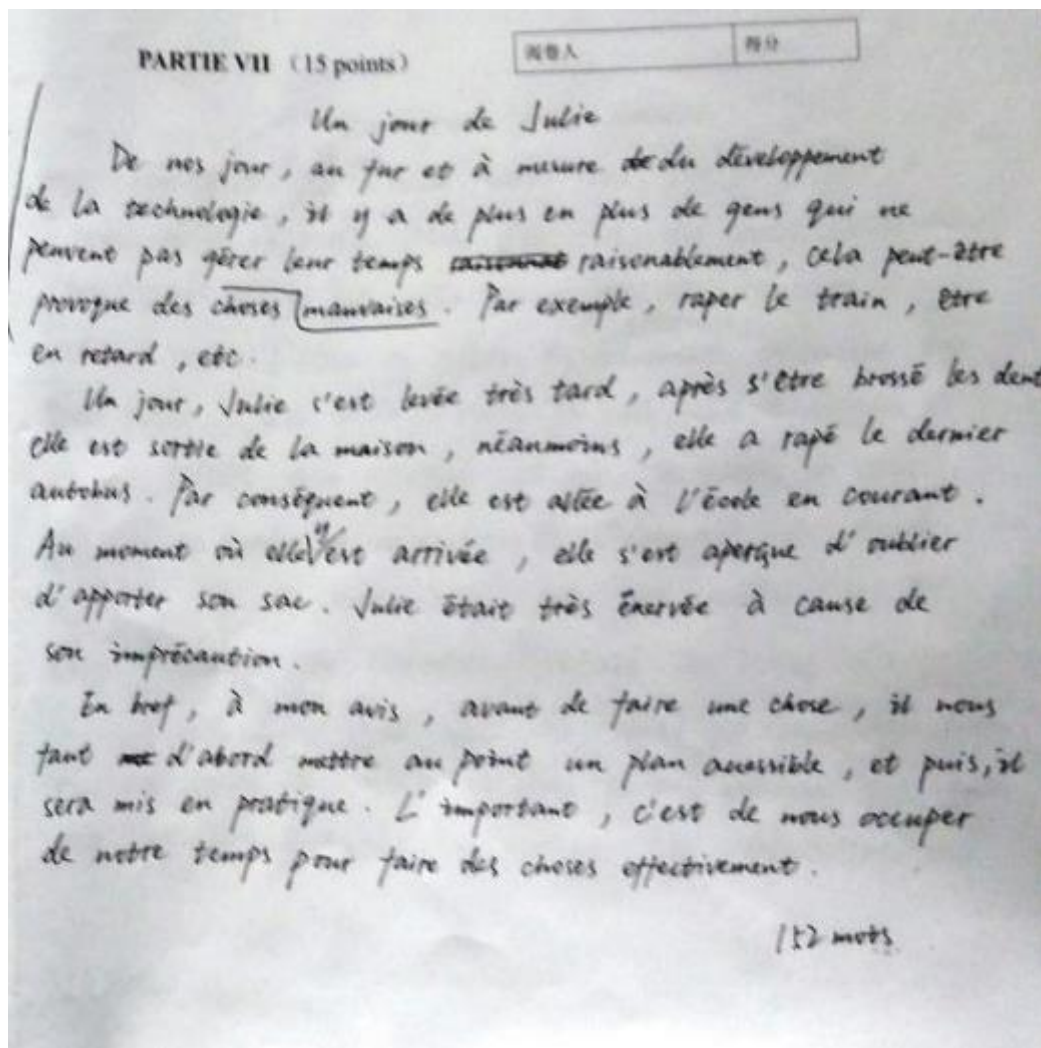 PARTIE VII （15 points）
阅卷人 得分
Un jour de Julie
De nos jour, au fur et à mesure du développement
de la technologie, il y a de plus en plus de gens qui ne
peuvent pas gérer leur temps raisonablement, cela peut-être
provoque des choses mauvaises. Par exemple, raper le train, être
en retard, etc.
Un jour, Julie s'est levée très tard, après s'être brossé les dent
elle est sortie de la maison, néanmoins, elle a rapé le dernier
autobus. Par conséquent, elle est allée à l'école en courant.
Au moment où elle y est arrivée, elle s'est aperçue d'oublier
d'apporter son sac. Julie était très énervée à cause de
son imprécaution.
En bref, à mon avis, avant de faire une chose, il nous
faut d'abord mettre au point un plan accessible, et puis, il
sera mis en pratique. L'important, c'est de nous occuper
de notre temps pour faire des choses effectivement.
152 mots